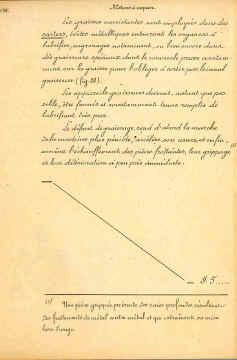 Moteur à vapeur.
Les graisses consistantes sont employées dans des
carters, boîtes métalliques enfermant les organes à
lubrifier, engrenages notamment, ou bien encore dans
des graisseurs spéciaux dont le couvercle presse constam-
ment sur la graisse pour l'obliger à sortir par le conduit
graisseur (fig. 28).
Les appareils graisseurs doivent, autant que pos-
sible, être fermés et constamment tenus remplis de
lubrifiant très pur.
Le défaut de graissage rend d'abord la marche
de la machine plus pénible, accélère son usure, et enfin
amène l'échauffement des pièces frottantes, leur grippage (1)
et leur détérioration à peu près immédiate.
N 5
(1) Une pièce grippée présente des raies profondes résultant
des frottements de métal contre métal et qui entraînent sa mise
hors d'usage.